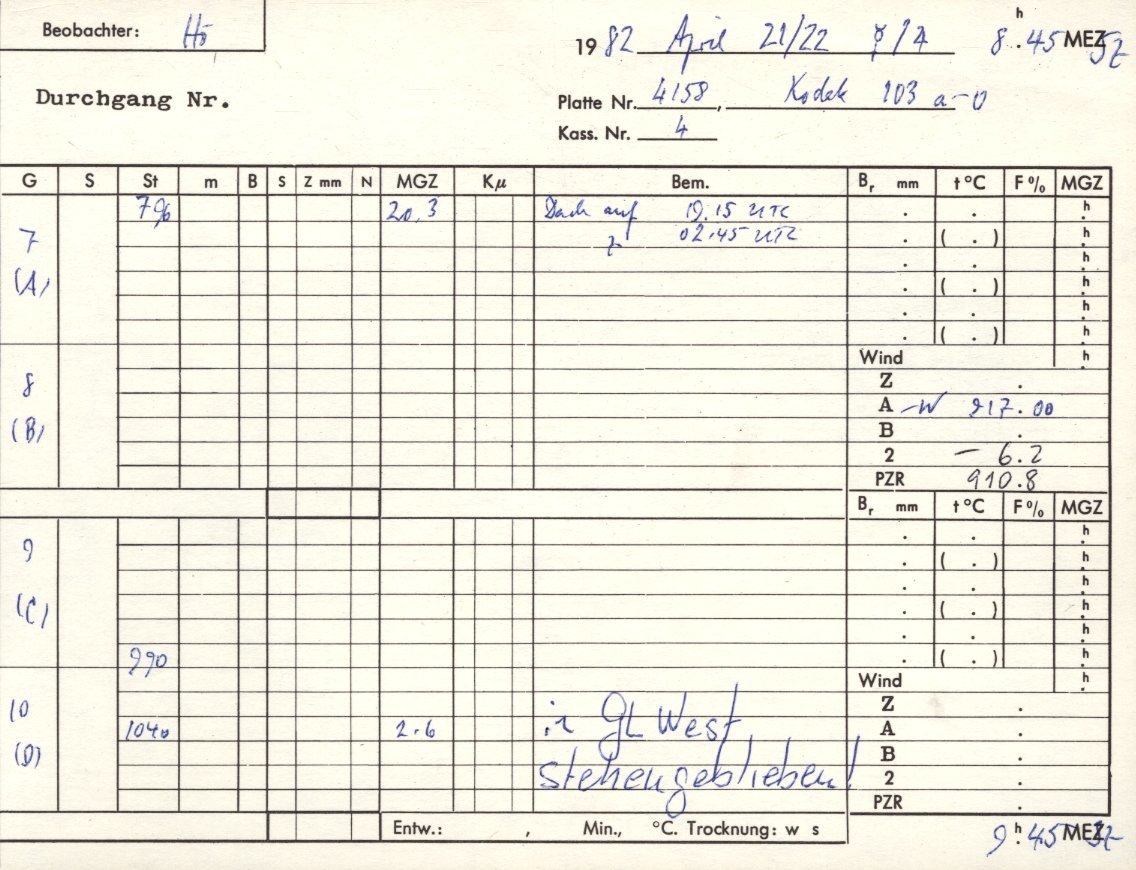 Beobachter: Hö
1982 April 21/22 8h.45 MEZ
Durchgang Nr.
Platte Nr. 4158, Kodak 103 a-O
Kass. Nr. 4
G S St m B S Z mm N MGZ Kµ Bem. Br mm t °C F % MGZ
796 20.3 Dach auf 19.15 UTC . . h.
7 z 02.45 UTC . ( . ) h.
. . h.
(A) . ( . ) h.
. . h.
. ( . ) h.
Wind h.
8 Z .
A W 917.00
(B) B .
2 - 6.2
PZR 910.8
Br mm t °C F % MGZ
. . h.
9 . ( . ) h.
. . h.
(C) . ( . ) h.
. . h.
990 . ( . ) h.
Wind h.
10 Z .
1040 2.6 in GL West A .
(D) B .
stehengeblieben! 2 .
PZR .
Entw.: , Min., °C. Trocknung: w s
9h.45 MEZ